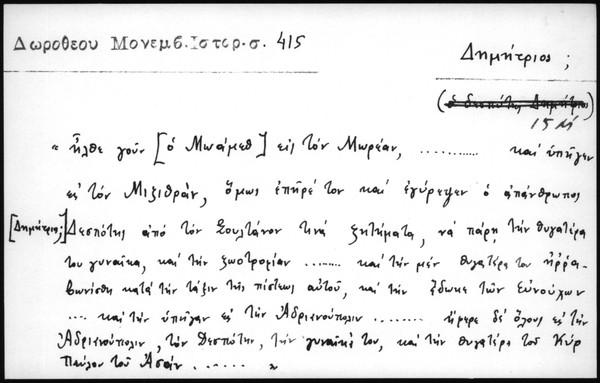 Δωροθεου Μονεμβ. Ιστορ. σ. 415
Δημήτριος ;
(ὁ δεσπότης Δημήτριος)
15
« ἦλθε γοῦν [ὁ Μωάμεθ] εἰς τὸν Μωρέαν, ........... καὶ ὑπῆγεν
εἰς τὸν Μιζιθρᾶν, ὅμως ἐπῆρέ τον καὶ ἐγύρεψεν ὁ ἀπάνθρωπος
[Δημήτριος;] Δεσπότης ἀπὸ τὸν Σουλτάνον τινὰ ζητήματα, νὰ πάρῃ τὴν θυγατέρα
του γυναῖκα, καὶ τὴν ζωοτροφίαν ........ καὶ τὴν μὲν θυγατέρα του ἠρρα-
βωνίσθη κατὰ τὴν τάξιν τῆς πίστεως αὐτοῦ, καὶ τὴν ἔδωκε τῶν Εὐνούχων
... καὶ τὴν ὑπῆγαν εἰς τὴν Ἀδριανούπολιν ........ ἤφερε δὲ ὅλους εἰς τὴν
Ἀδριανούπολιν, τὸν Δεσπότην, τὴν γυναῖκά του, καὶ τὴν θυγατέρα τοῦ Κὺρ
Παύλου τοῦ Ἀσάν ....... »